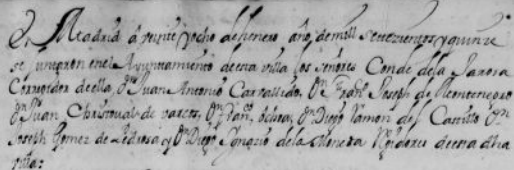 En Madrid a veinte y ocho de henero año de mill setezientos y quinze
se juntaron en el Ayuntamiento de esta villa los señores Conde de la Jarosa
Corregidor de ella, Dn Juan Antonio Carrallido, Dn Franco Joseph de Montenegro
Dn Juan Christoual de Barcos, Dn Franco ochoa, Dn Diego Ramon del Castillo Dn
Joseph Gomez de Pedrosa y Dn Diego Ignazio de la Moneda Rexidores de esta dha
villa: